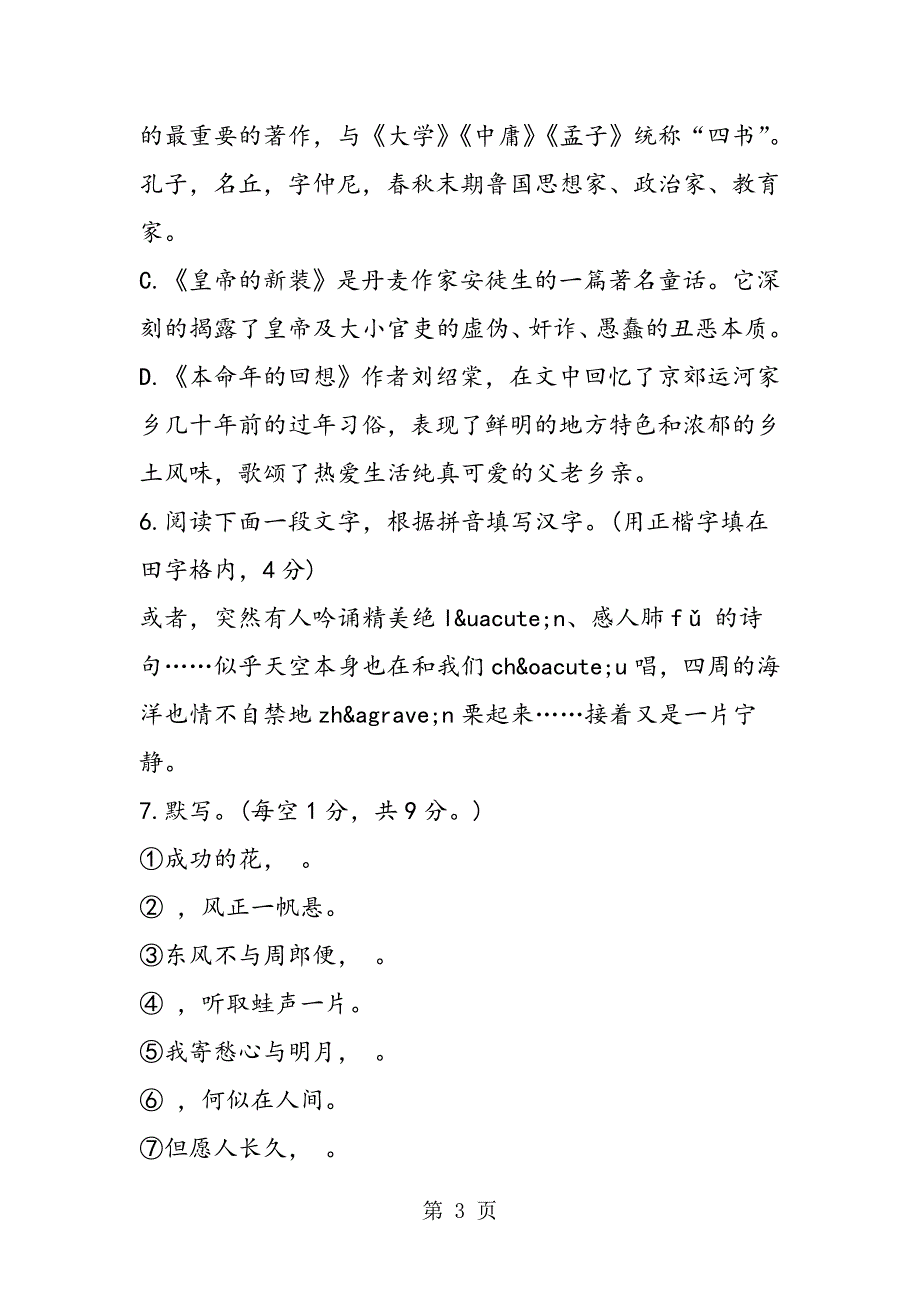 的最重要的著作，与《大学》《中庸》《孟子》统称“四书”。
孔子，名丘，字仲尼，春秋末期鲁国思想家、政治家、教育
家。
C.《皇帝的新装》是丹麦作家安徒生的一篇著名童话。它深
刻的揭露了皇帝及大小官吏的虚伪、奸诈、愚蠢的丑恶本质。
D.《本命年的回想》作者刘绍棠，在文中回忆了京郊运河家
乡几十年前的过年习俗，表现了鲜明的地方特色和浓郁的乡
土风味，歌颂了热爱生活纯真可爱的父老乡亲。
6.阅读下面一段文字，根据拼音填写汉字。(用正楷字填在
田字格内，4分)
或者，突然有人吟诵精美绝l&uacute;n、感人肺fǔ 的诗
句……似乎天空本身也在和我们ch&oacute;u唱，四周的海
洋也情不自禁地zh&agrave;n栗起来……接着又是一片宁
静。
7.默写。(每空1分，共9分。)
①成功的花， 。
② ，风正一帆悬。
③东风不与周郎便， 。
④ ，听取蛙声一片。
⑤我寄愁心与明月， 。
⑥ ，何似在人间。
⑦但愿人长久， 。
第 3 页